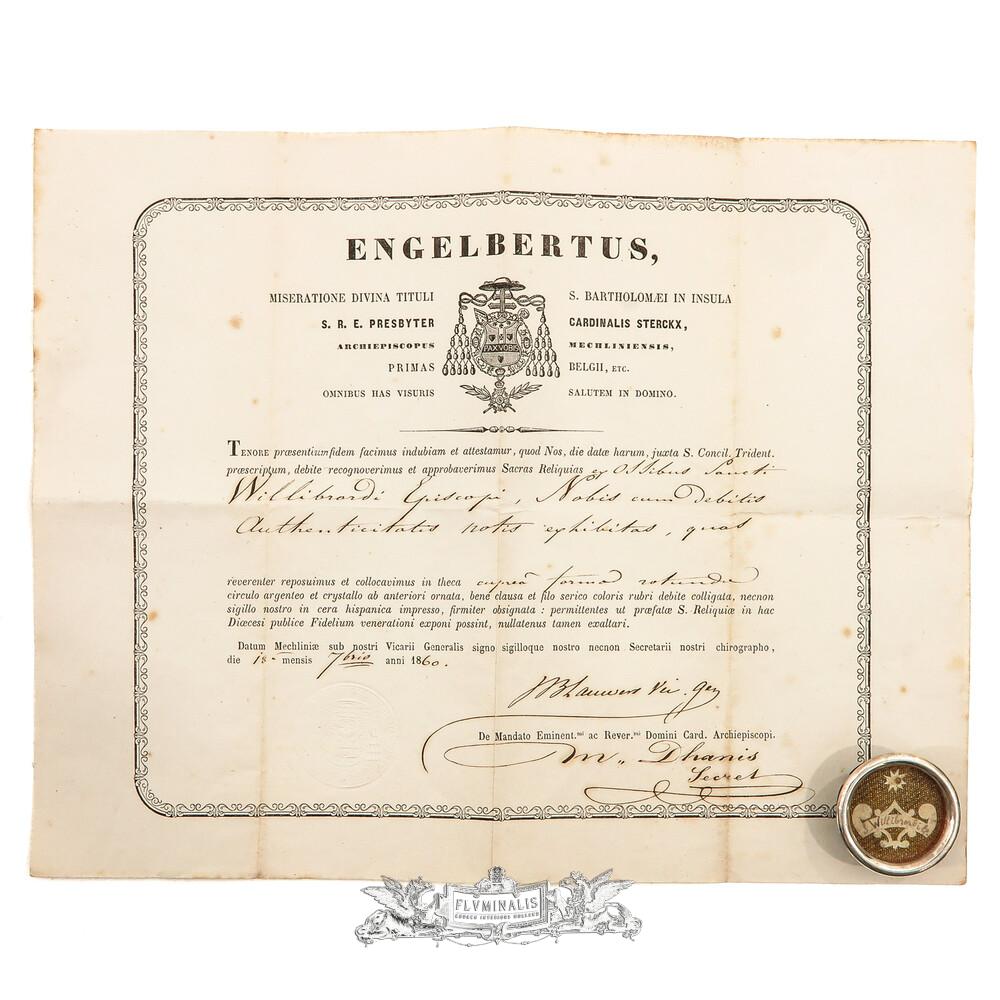 ENGELBERTUS,
MISERATIONE DIVINA TITULI S. BARTHOLOMÆI IN INSULA
S. R. E. PRESBYTER CARDINALIS STERCKX,
ARCHIEPISCOPUS MECHLINIENSIS,
PRIMAS BELGII, ETC.
OMNIBUS HAS VISURIS SALUTEM IN DOMINO.
PAX VOBIS
TENORE præsentium fidem facimus indubiam et attestamur, quod Nos, die datæ harum, juxta S. Concil. Trident.
præscriptum, debite recognoverimus et approbaverimus Sacras Reliquias ex Ossibus Sancti
Willibrordi Episcopi, Nobis cum debitis
Authenticitatis notis exhibitas, quas
reverenter reposuimus et collocavimus in theca cuprea forma rotunda
circulo argenteo et crystallo ab anteriori ornata, bene clausa et filo serico coloris rubri debite colligata, necnon
sigillo nostro in cera hispanica impresso, firmiter obsignata : permittentes ut præfatæ S. Reliquiæ in hac
Diœcesi publice Fidelium venerationi exponi possint, nullatenus tamen exaltari.
Datum Mechliniæ sub nostri Vicarii Generalis signo sigilloque nostro necnon Secretarii nostri chirographo,
die 18 mensis 7bris anni 1860.
JBLauwers Vic. Gen
De Mandato Eminent.mi ac Rever.mi Domini Card. Archiepiscopi.
M. Dhanis
Secret
Willibrordi
FLVMINALIS
CHURCH INTERIORS HOLLAND